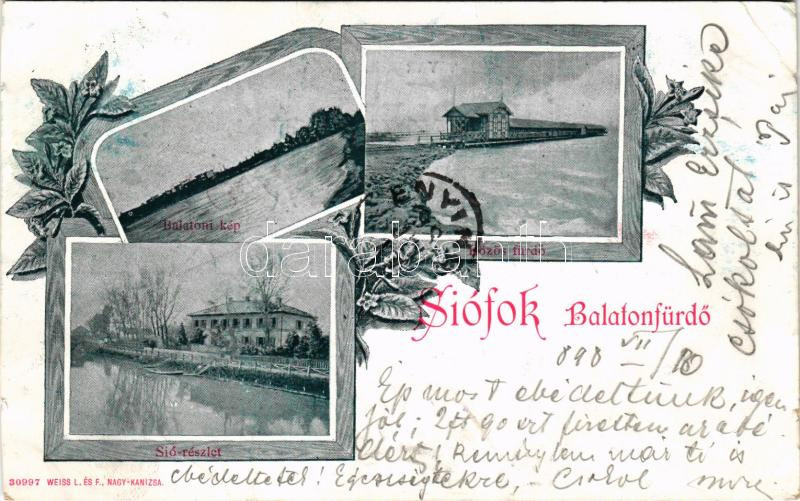 Balatoni kép
Közös fürdő
ENYING
darabanth.com
Siófok Balatonfürdő
Sió-részlet
30997 WEISS L. ÉS F., NAGY-KANIZSA.
898 VII/10
Ép most ebédeltünk, igen
jól; 2 frt 90 krt fizettem
reménylem már ti is
ebédeltetek! Egészségtekre, - Csókol
csókoltat